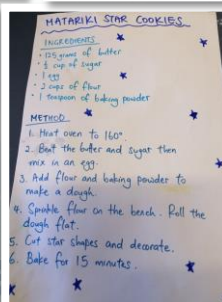 MATARIKI STAR COOKIES
INGREDIENTS
• 125 grams of butter
• ½ cup of sugar
• 1 egg
• 2 cups of flour
• 1 teaspoon of baking powder
METHOD
1. Heat oven to 160°
2. Beat the butter and sugar then
mix in an egg.
3. Add flour and baking powder to
make a dough.
4. Sprinkle flour on the bench. Roll the
dough flat.
5. Cut star shapes and decorate.
6. Bake for 15 minutes.